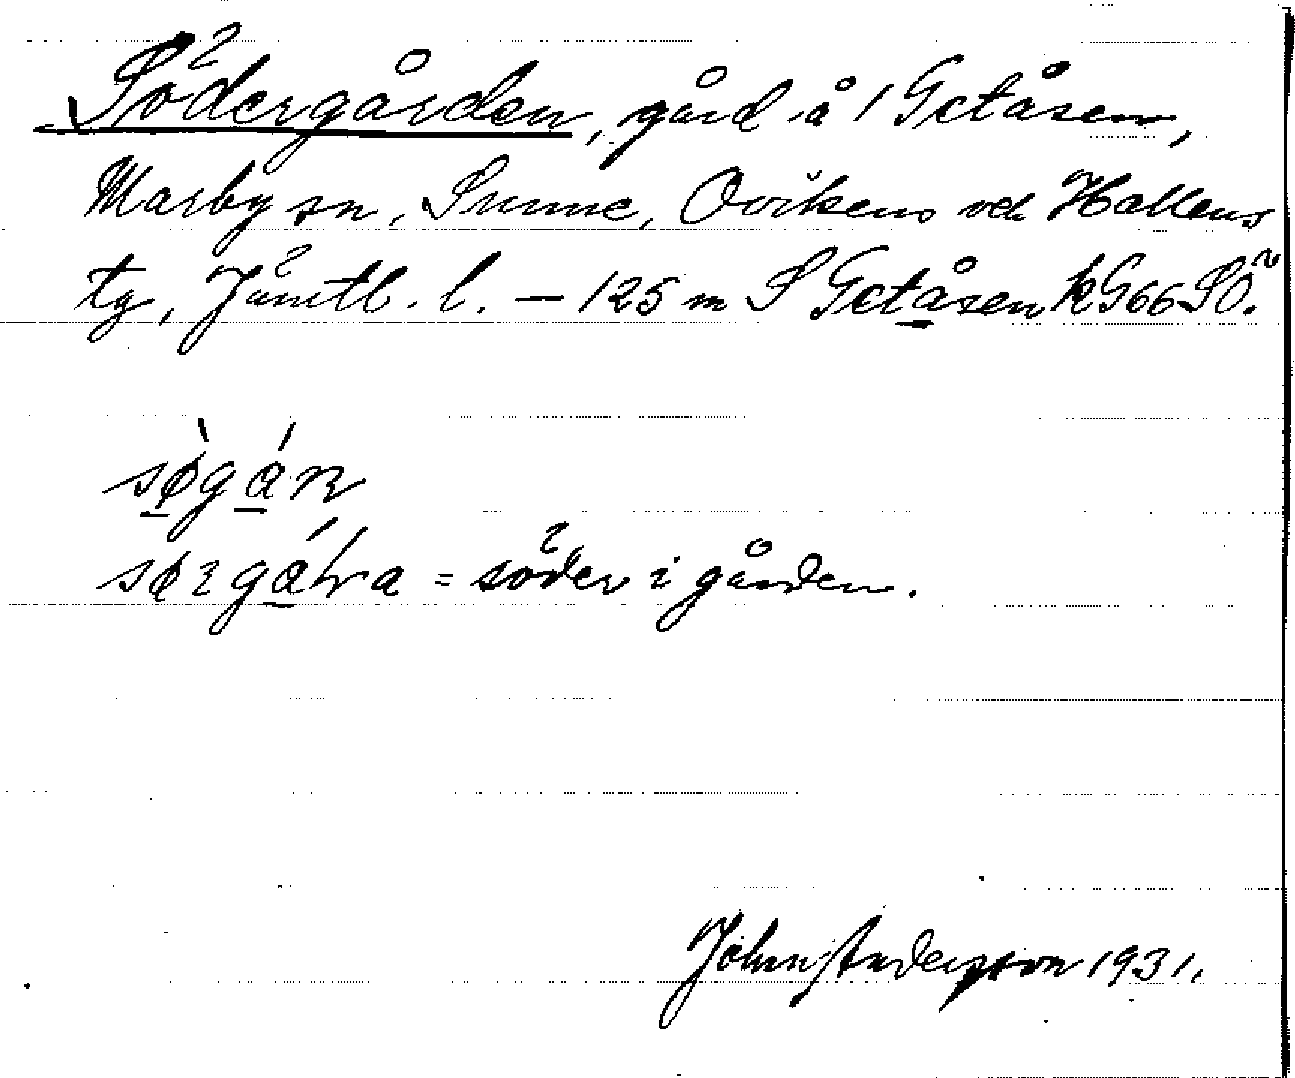 Södergården, gård å 1 Getåsen,
Marby sn, Sunne, Ovikens och Hallens
tg, Jämtl. l. — 125 m S Getåsen k G66 SÖ.
sø̀gáɴ
søʀgálva = söder i gården.
John Andersson 1931.